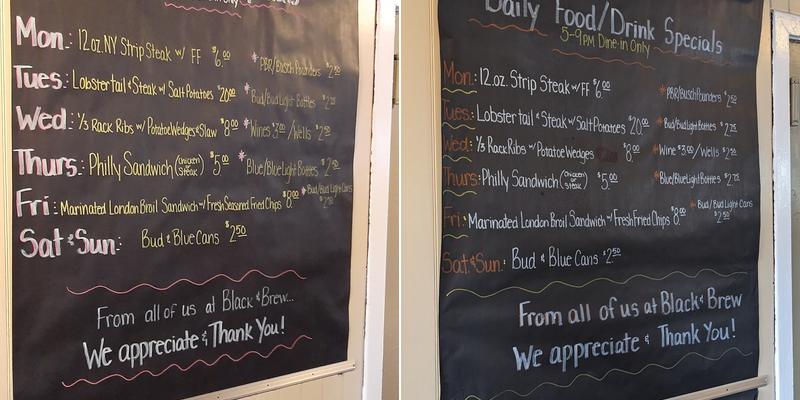 Mon: 12 oz. NY Strip Steak w/ FF $6.00 * PBR/Busch Pounders $2.50
Tues: Lobster tail & Steak w/ Salt Potatoes $20.00 * Bud/Bud Light Bottles $2.75
Wed: 1/3 Rack Ribs w/ Potato Wedges & Slaw $8.00 * Wines $3.00 / Wells $2.50
Thurs: Philly Sandwich (Chicken/Steak) $5.00 * Blue/Blue Light Bottles $2.75
Fri: Marinated London Broil Sandwich w/ Fresh Seasoned Fried Chips $8.00 * Bud/Bud Light Cans $2.50
Sat & Sun: Bud & Blue Cans $2.50
From all of us at Black & Brew...
We appreciate & Thank You!
Daily Food/Drink Specials
5-9pm Dine-in Only
Mon: 12 oz. Strip Steak w/ FF $6.00 * PBR/Busch Pounders $2.50
Tues: Lobster tail & Steak w/ Salt Potatoes $20.00 * Bud/Bud Light Bottles $2.75
Wed: 1/3 Rack Ribs w/ Potato Wedges $8.00 * Wine $3.00 / Wells $2.50
Thurs: Philly Sandwich (Chicken or Steak) $5.00 * Blue/Blue Light Bottles $2.75
Fri: Marinated London Broil Sandwich w/ Fresh Fried Chips $8.00 * Bud/Bud Light Cans $2.50
Sat & Sun: Bud & Blue Cans $2.50
From all of us at Black & Brew
We appreciate & Thank You!